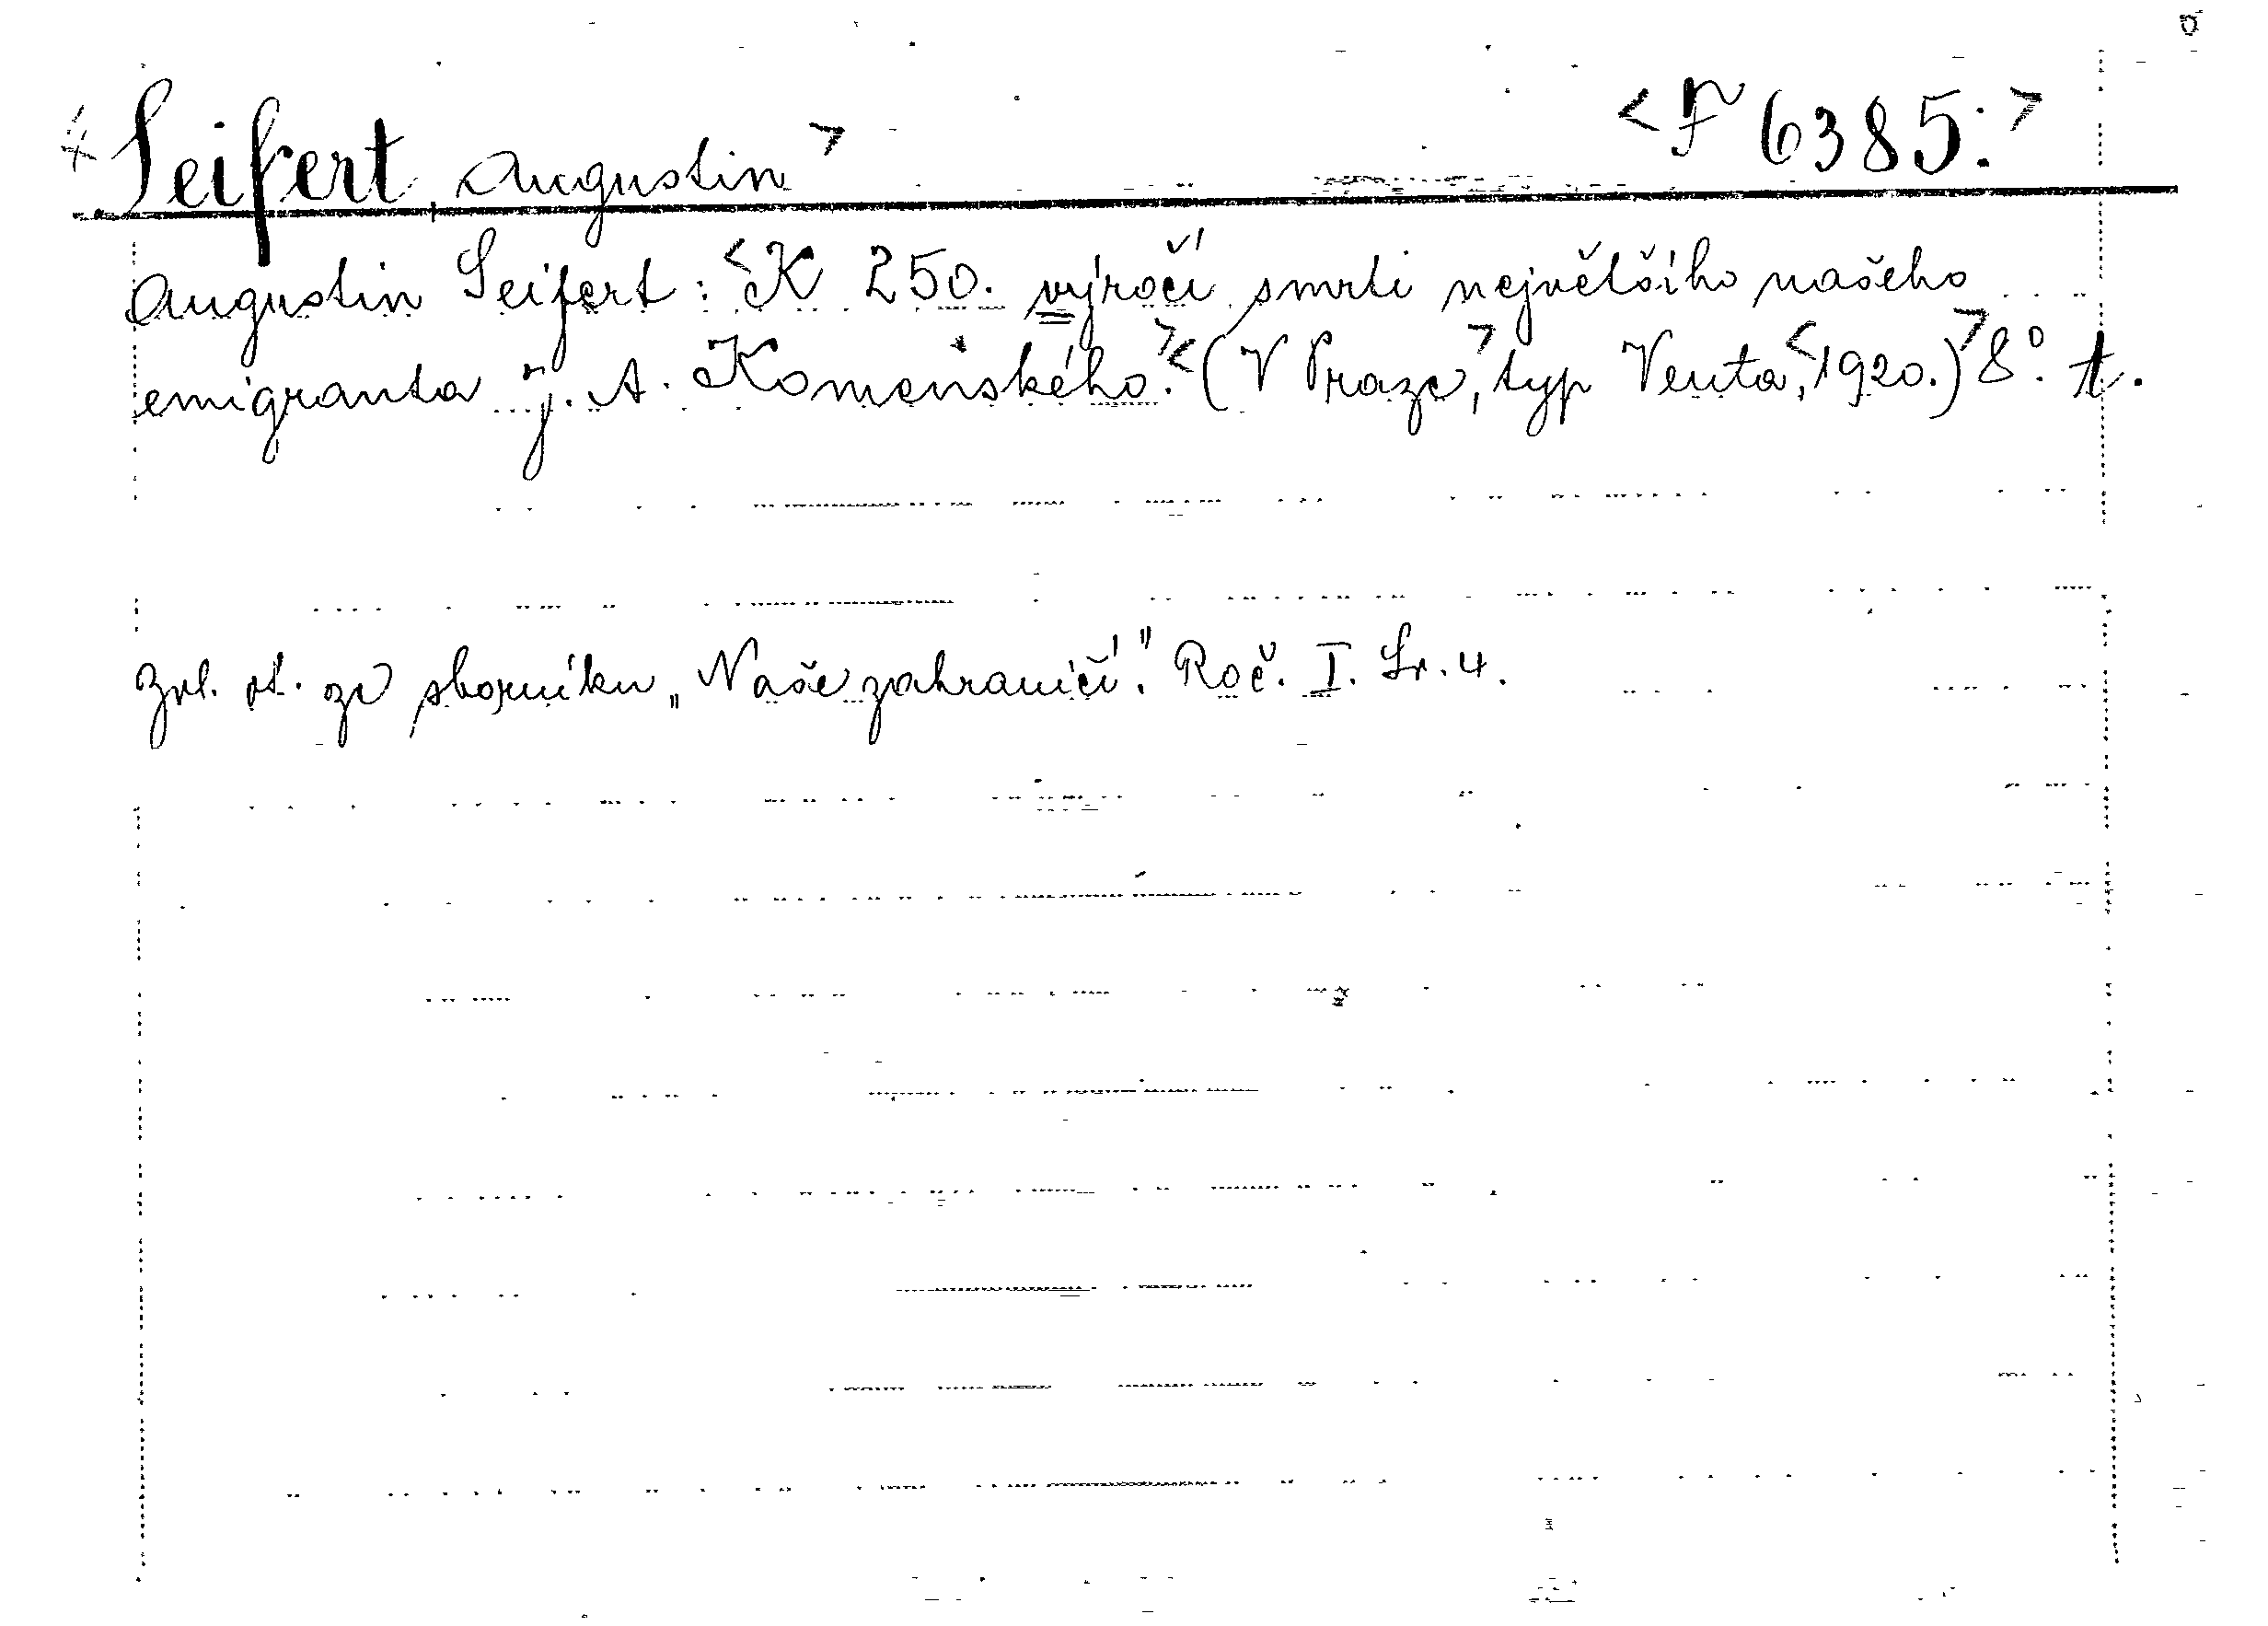 <Seifert, Augustin> <F 6385.>
Augustin Seifert: <K 250. výročí smrti největšího našeho
emigranta J. A. Komenského.><(V Praze,> typ Venta,<1920.)> 8°. t.
Zvl. ot. ze sborníku „Naše zahraničí." Roč. I. Sv. 4.